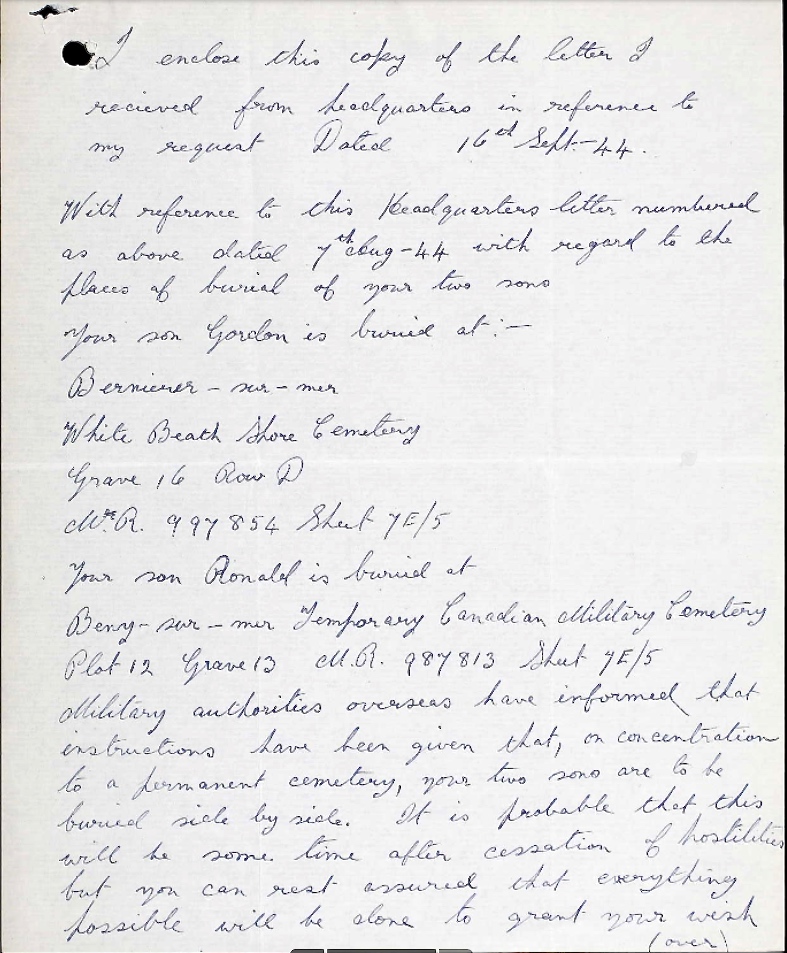 I enclose this copy of the letter I
recieved from headquarters in reference to
my request Dated 16th Sept-44.
With reference to this Headquarters letter numbered
as above dated 7th Aug-44 with regard to the
places of burial of your two sons
Your son Gordon is buried at:-
Bernierer-sur-mer
White Beath Shore Cemetery
Grave 16 Row D
M.R. 997854 Sheet 7E/5
Your son Ronald is buried at
Beny-sur-mer Temporary Canadian Military Cemetery
Plot 12 Grave 13 M.R. 987813 Sheet 7E/5
Military authorities overseas have informed that
instructions have been given that, on concentration
to a permanent cemetery, your two sons are to be
buried side by side. It is probable that this
will be some time after cessation of hostilities
but you can rest assured that everything
possible will be done to grant your wish
(over)